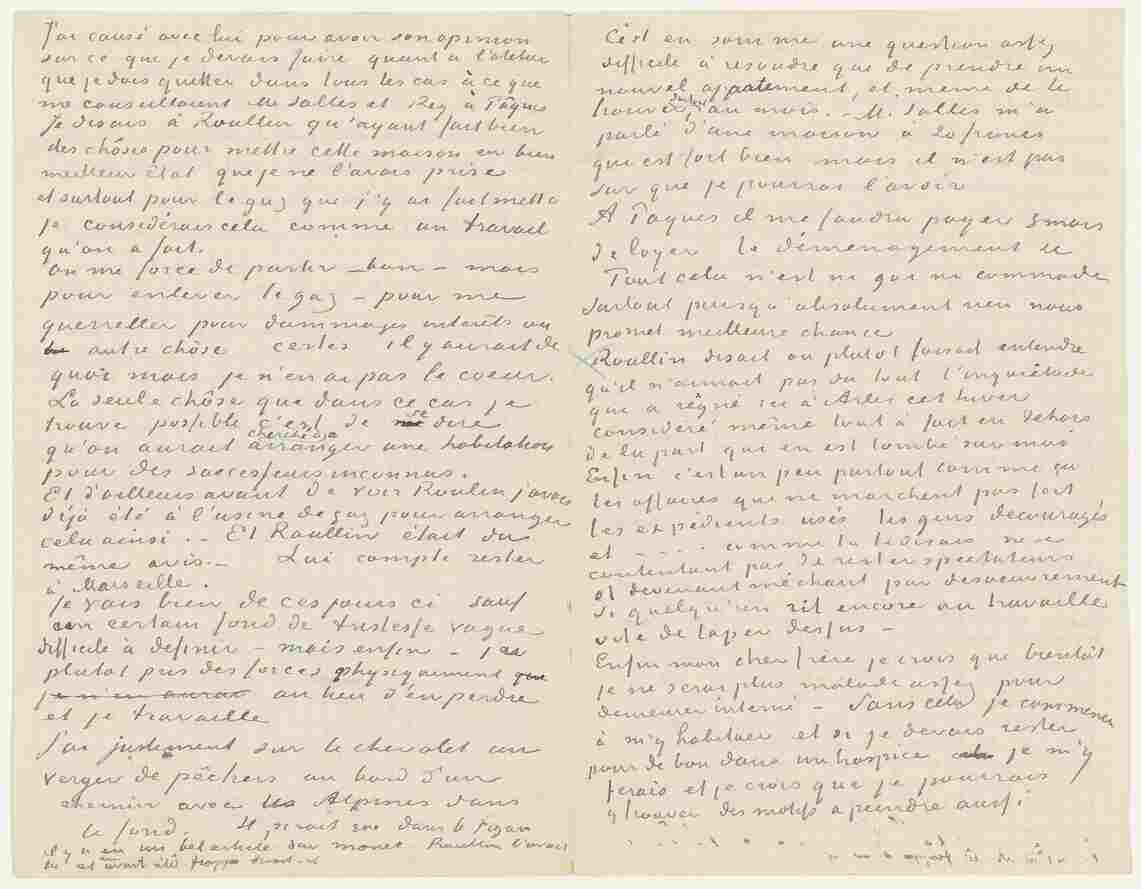 J'ai causé avec lui pour avoir son opinion
sur ce que je devais faire quant à l'atelier
que je dois quitter dans tous les cas à ce que
me conseillaient M. Salles et Rey, à Pâques
Je disais à Roullin qu'ayant fait bien
des chôses pour mettre cette maison en bien
meilleur état que je ne l'avais prise
et surtout pour le gaz que j'y ai fait mettre
je considérais cela comme un travail
qu'on a fait.
on me force de partir – bon – mais
pour enlever le gaz – pour me
quereller pour dommages intérêts ou
autre chôse certes il y aurait de
quoi mais je n'en ai pas le coeur.
La seule chôse que dans ce cas je
trouve possible c'est de se dire
qu'on aurait cherché à arranger une habitation
pour des successeurs inconnus.
Et d'ailleurs avant de voir Roulin j'avais
déjà été à l'usine de gaz pour arranger
cela ainsi . – Et Roullin était du
même avis. – Lui compte rester
à Marseille.
Je vais bien de ces jours ci sauf
un certain fond de tristesse vague
difficile à definir – mais enfin – j'ai
plutot pris des forces physiquement que
je n'en aurai au lieu d'en perdre
et je travaille
J'ai justement sur le chevalet un
verger de pêchers au bord d'un
chemin avec les Alpines dans
le fond. Il parait que dans le Figaro
il y a eu un bel article sur Monet Roullin l'avait
lu et avait été frappé disait-il
C'est en somme une question assez
difficile à résoudre que de prendre un
nouvel appartement, et même de le
trouver surtout au mois. – M. Salles m'a
parlé d'une maison à 20 francs
qui est fort bien mais il n'est pas
sur que je pourrai l'avoir
A Pâques il me faudra payer 3 mois
de loyer le déménagement &c
Tout cela n'est ni gai ni commode
surtout puisqu'absolument rien nous
promet meilleure chance
Roullin disait ou plutot faisait entendre
qu'il n'aimait pas du tout l'inquiétude
qui a règné ici à Arles cet hiver
considéré même tout à fait en dehors
de la part qui en est tombé sur moi
Enfin c'est un peu partout comme ça
les affaires qui ne marchent pas fort
les expédients usés les gens decouragés
et - . . . comme tu le disais ne se
contentant pas de rester spectateurs
et devenant méchant par desoeuvrement
si quelqu'un rit encore ou travaille
vite de taper dessus –
Enfin mon cher frère je crois que bientôt
je ne serai plus malade assez pour
demeurer interné – Sans cela je commence
à m'y habituer et si je devais rester
pour de bon dans un hospice je m'y
ferais et je crois que je pourrais
y trouver des motifs à peindre aussi